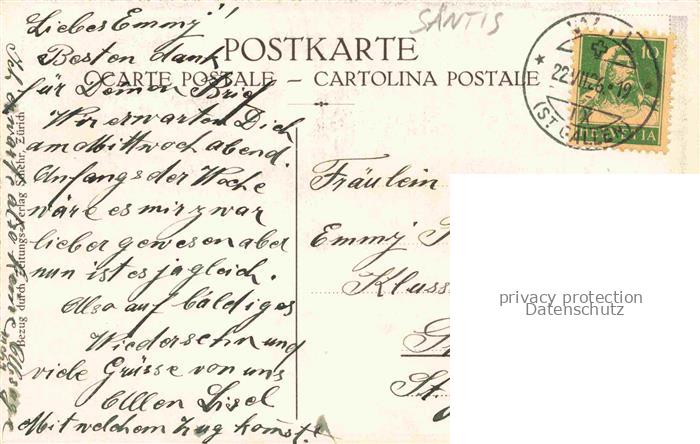 SÄNTIS
POSTKARTE
CARTE POSTALE – CARTOLINA POSTALE
22.VII.26.-19
(ST. GALLEN)
10
HELVETIA
Liebes Emmy!!
Besten dank
für Deinen Brief
Wir erwarten Dich
am Mittwoch abend.
Anfangs der Woche
wäre es mir zwar
lieber gewesen aber
nun ist es ja gleich.
Also auf baldiges
Wiedersehn und
viele Grüsse von uns
Allen Lisel
Mit welchem Zug komst?
Ich erwarte also keine Absage
Bezug durch Zeitungs-Verlag Zürich
Fräulein
Emmy
Kluss
privacy protection
Datenschutz